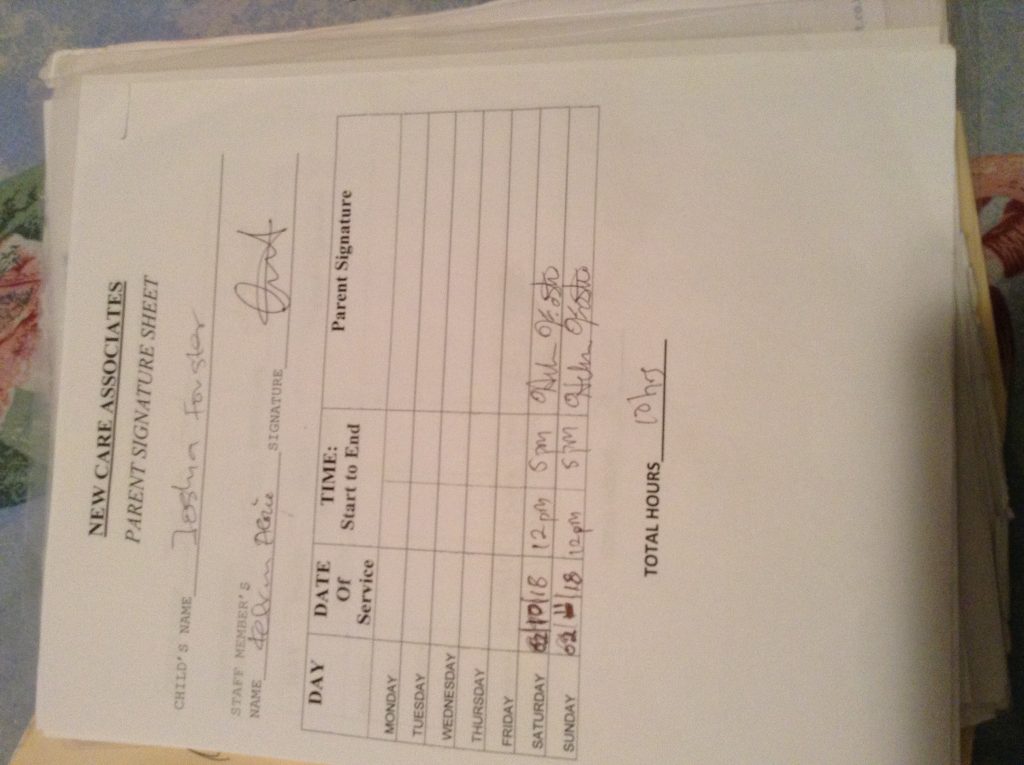 NEW CARE ASSOCIATES
PARENT SIGNATURE SHEET
CHILD'S NAME Joshua Forster
STAFF MEMBER'S
NAME SIGNATURE
DAY DATE Of Service TIME: Start to End Parent Signature
MONDAY
TUESDAY
WEDNESDAY
THURSDAY
FRIDAY
SATURDAY 02/10/18 12pm 5pm
SUNDAY 02/11/18 12pm 5pm
TOTAL HOURS 10hrs